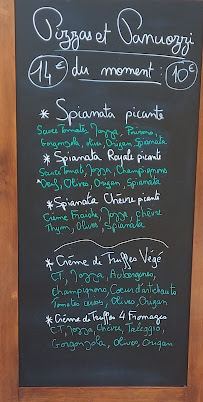 Pizzas et Panuozzi
14€ du moment : 10€
* Spianata picante
Sauce Tomates, Jozza, Poivrons,
Gorgonzola, olives, Origan, Spianata
* Spianata Royale picante
Sauce Tomat, Jozza, Champignons
Oeuf, Olives, Origan, Spianata
* Spianata Chèvre picante
Crème Fraiche, Jozza, chèvre
Thym, Olives, Spianata
* Crème de Truffes Végé
CT, Jozza, Aubergines,
Champignons, Coeur d'artichauts
Tomates cerises, Olives, Origan
* Crème de Truffes 4 Fromages
CT, Jozza, Chèvre, Taleggio,
Gorgonzola, Olives, Origan